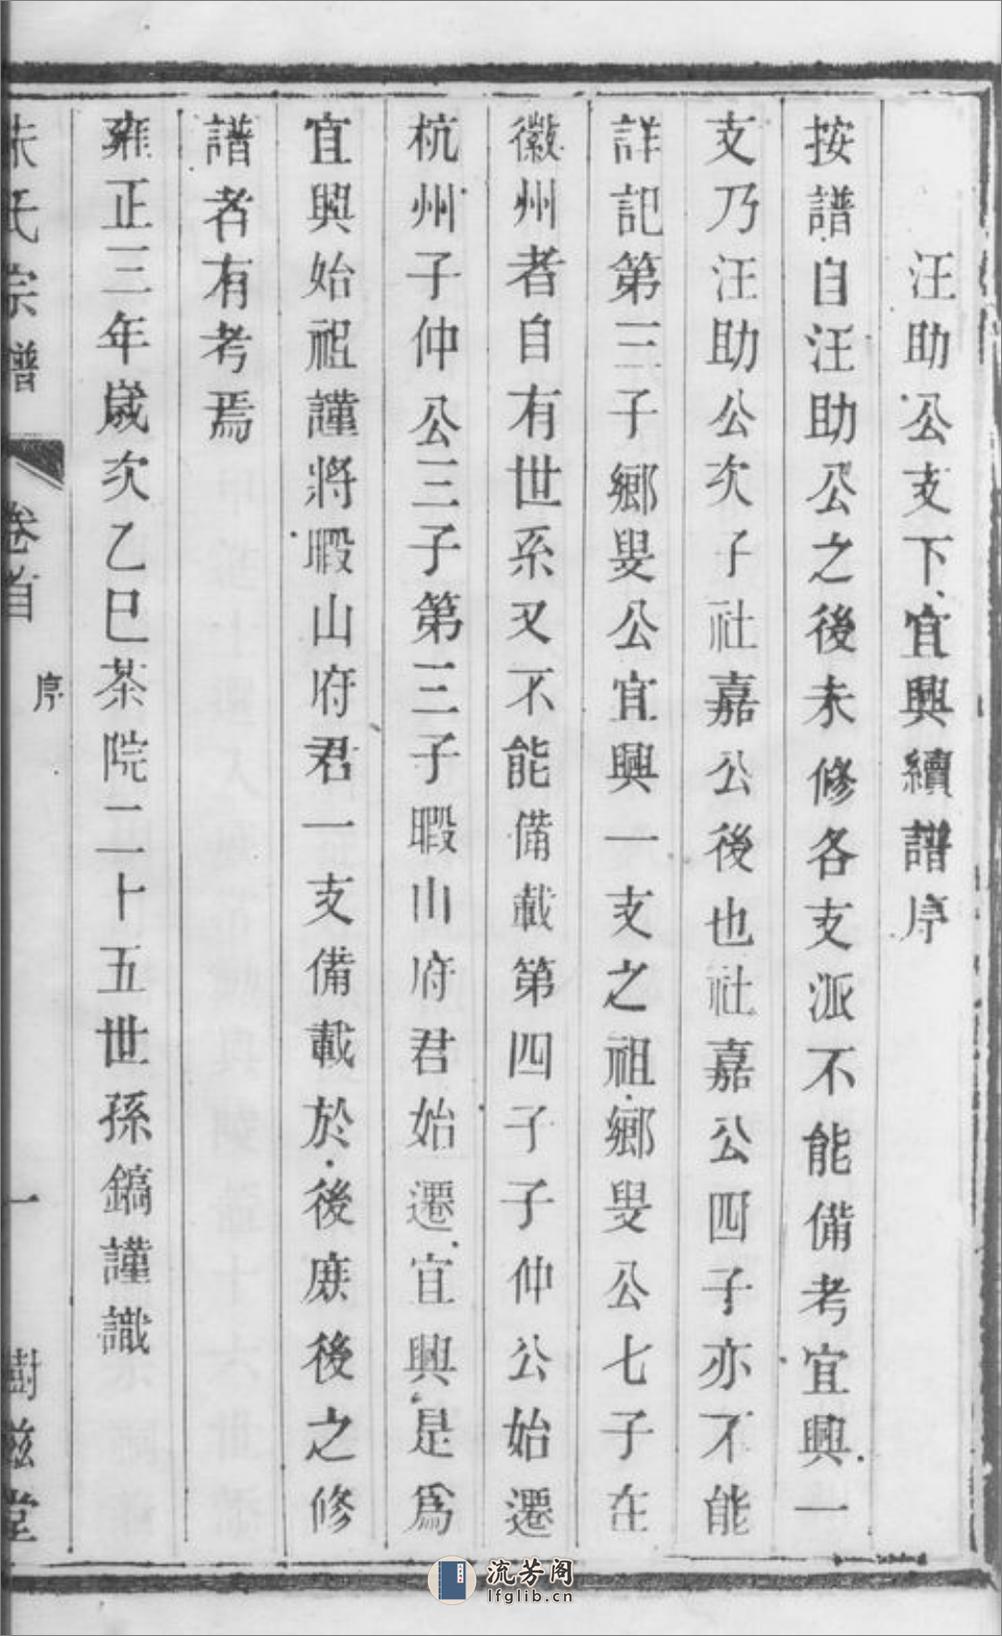 汪助公支下宜興續譜序
按譜自汪助公之後未修各支派不能備考宜興一
支乃汪助公次子社嘉公後也社嘉公四子亦不能
詳記第三子鄉叟公宜興一支之祖鄉叟公七子在
徽州者自有世系又不能備載第四子子仲公始遷
杭州子仲公三子第三子暇山府君始遷宜興是爲
宜興始祖謹將暇山府君一支備載於後庶後之修
譜者有考焉
雍正三年歲次乙巳茶院二十五世孫鎬謹識
朱氏宗譜 卷首 序 一 樹滋堂
流芳阁
lfglib.cn